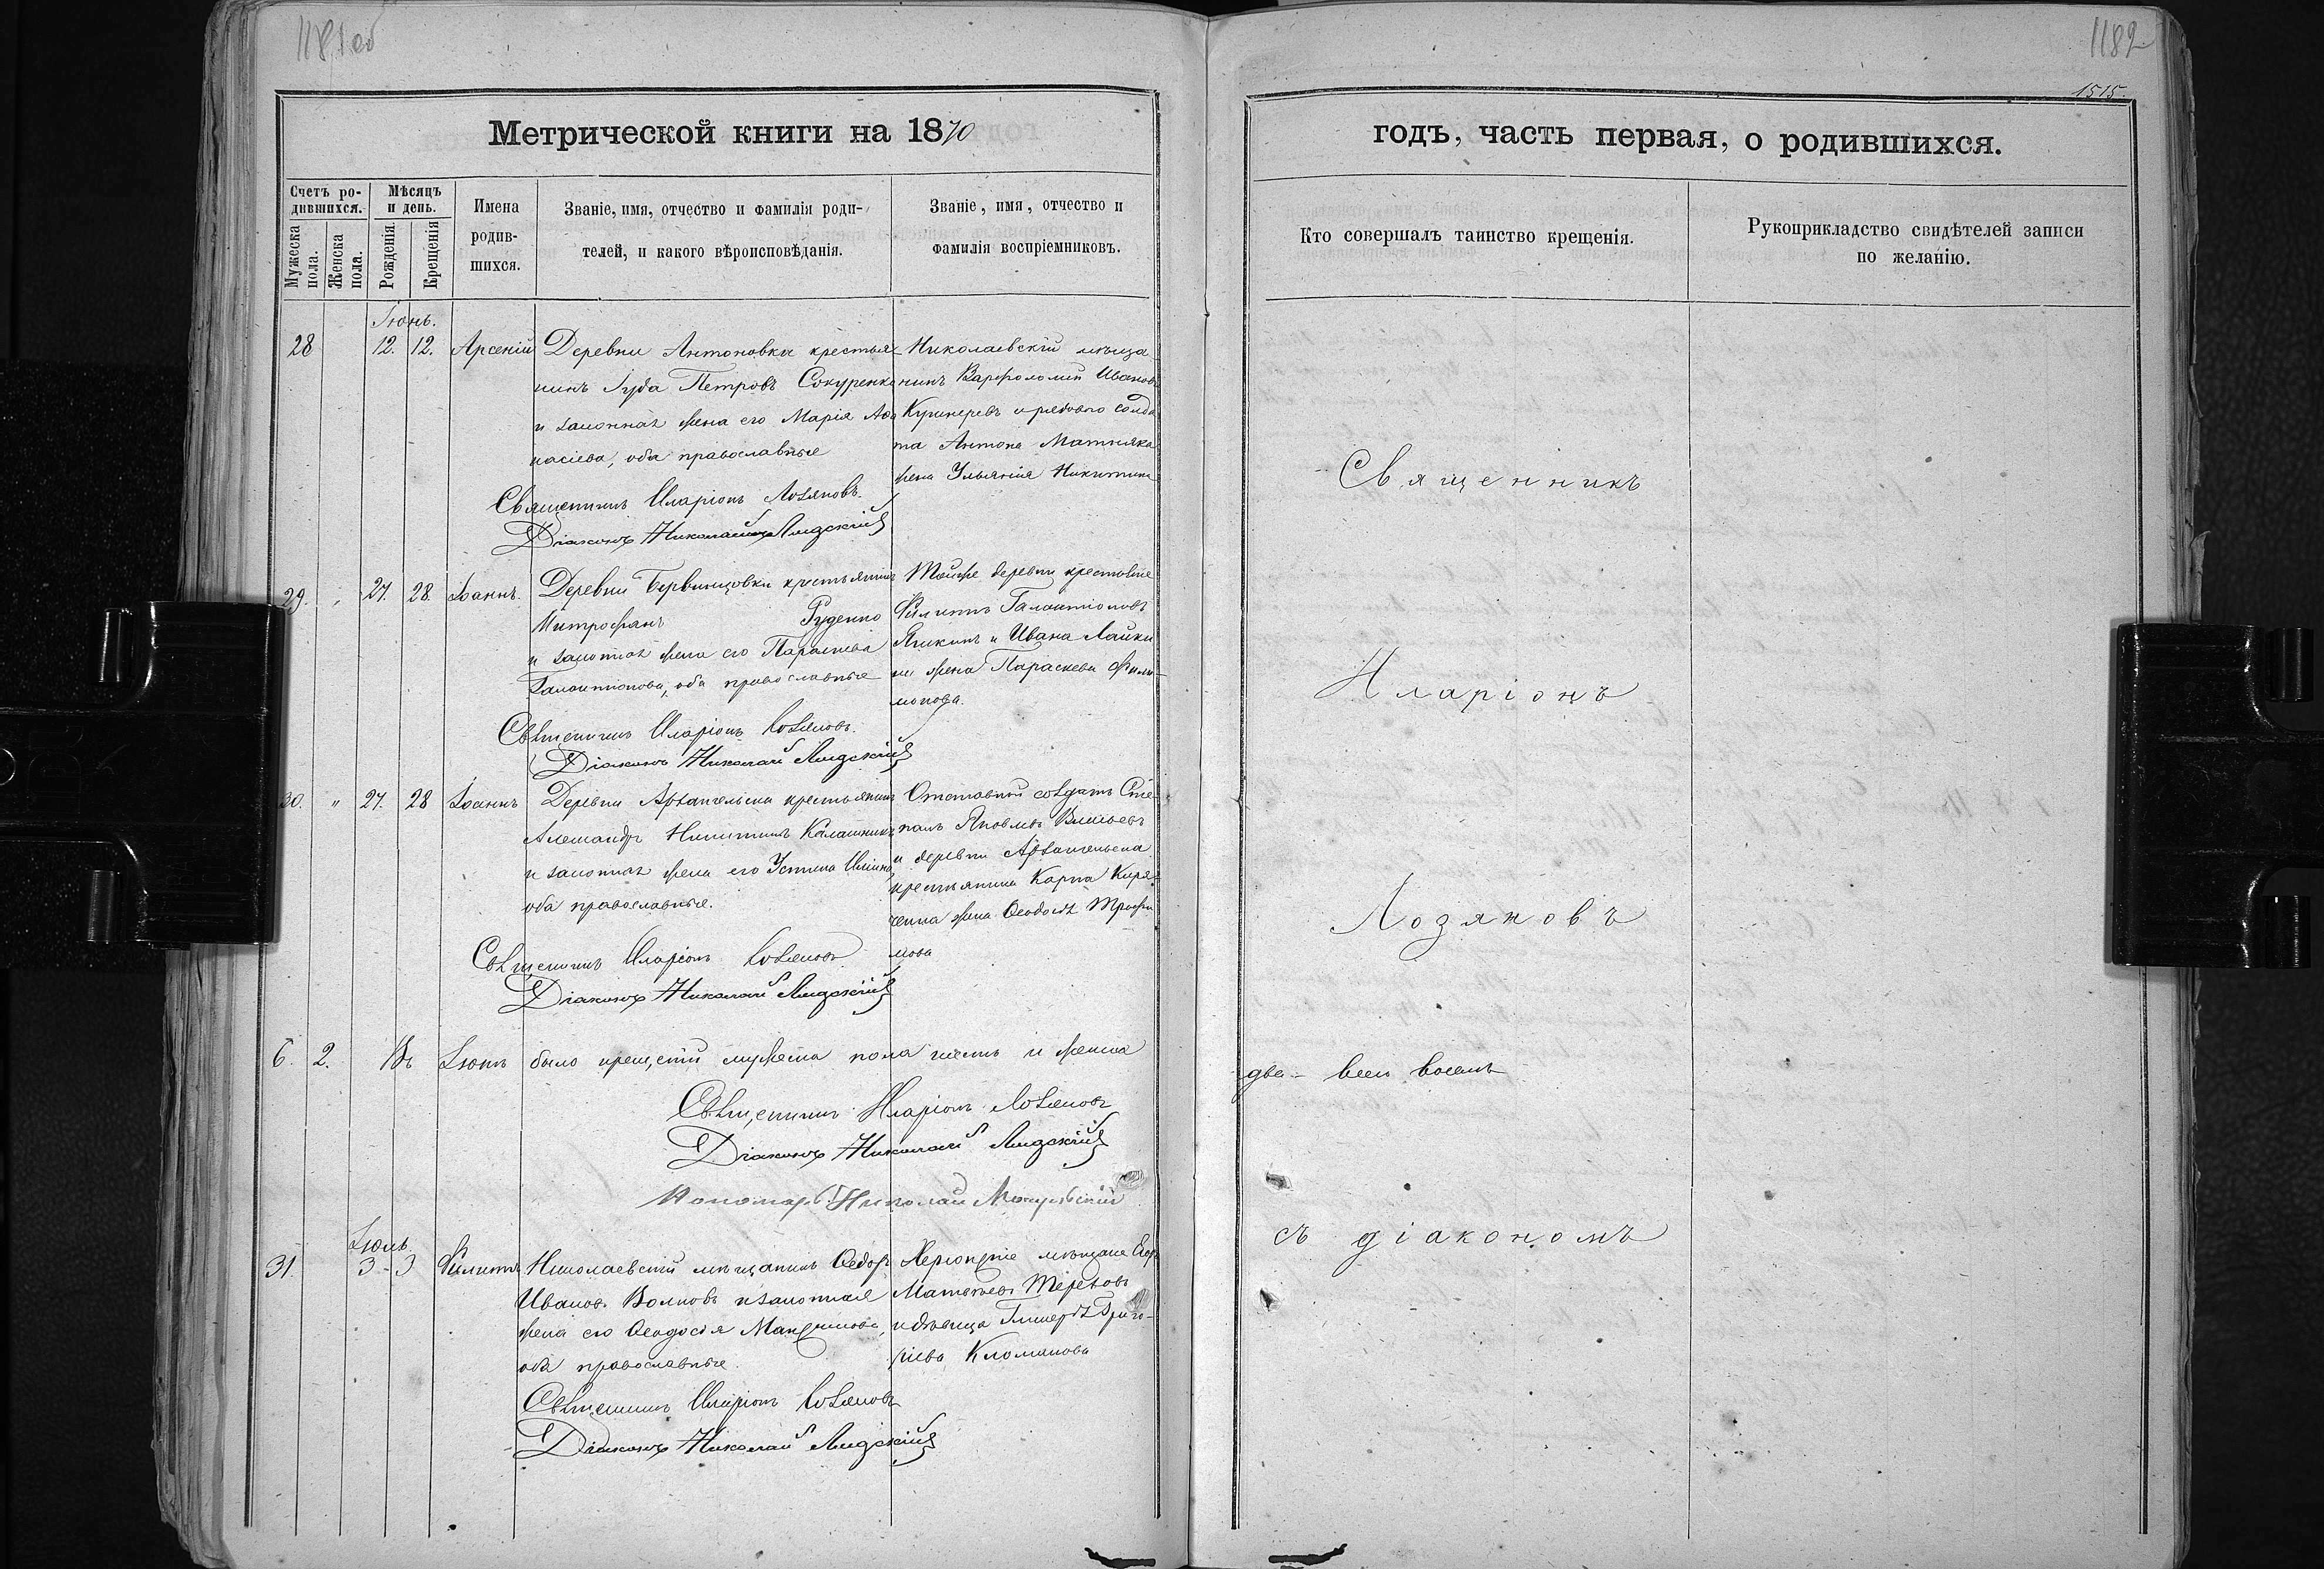 1181 об
1182
1515.
Метрической книги на 1870
годъ, часть первая, о родившихся.
Счетъ родившихся.
Мужеска пола.
Женска пола.
Мѣсяцъ и день.
Рожденія.
Крещенія
Имена родив-
шихся.
Званіе, имя, отчество и фамилія роди-
телей, и какого вѣроисповѣданія.
Званіе, имя, отчество и
фамилія воспріемниковъ.
Кто совершалъ таинство крещенія.
Рукоприкладство свидѣтелей записи
по желанію.
Іюнь.
28 12. 12. Арсеній
Деревни Антоновки крестья-
нинъ Іуда Петровъ Сокуренко
и законная жена его Марія Аѳа
насіева, оба православные
Николаевскій мѣща
нинъ Варфоломей Ивановъ
и рядоваго солда
та Антона
жена Ульянія Никитина
Священникъ Иларіонъ Лозяновъ.
Діаконъ Николай Лидскій
29. 27. 28. Іоаннъ.
Деревни крестьянинъ
Митрофанъ Руденко
и законная жена его Параскева
Галактіонова, оба православные
Тойже деревни крестьяне
Филиппъ Галактіоновъ
и Ивана
жена Параскева Фили-
монова.
Священникъ Иларіонъ Лозяновъ.
Діаконъ Николай Лидскій
30. " 27. 28 Іоаннъ
Деревни Архангельска крестьянинъ
Александръ Никитинъ Калашникъ
и законная жена его Устина
оба православные.
Отставной солдатъ Сте-
панъ Яковлевъ
и деревни Архангельска
крестьянина Карпа Киря-
ченка жена Ѳеодосія Трофи
мова
Священникъ Иларіонъ Лозяновъ
Діаконъ Николай Лидскій
6. 2. Въ Іюнѣ было крещеній мужеска пола шесть и женска
два - всего восемь
Священникъ Иларіонъ Лозяновъ
Діаконъ Николай Лидскій
Пономарь Николай
Іюль
31 3 - 3 Филиппъ
Николаевскій мѣщанинъ Ѳедоръ
Ивановъ Волковъ и законная
жена его Ѳеодосія Максимова,
оба православные.
Херсонскіе мѣщане Егоръ
Матвѣевъ Тереховъ
и дѣвица Гликерія Григо-
ріева
Священникъ Иларіонъ Лозяновъ
Діаконъ Николай Лидскій
Священникъ
Иларіонъ
Лозяновъ
съ діакономъ